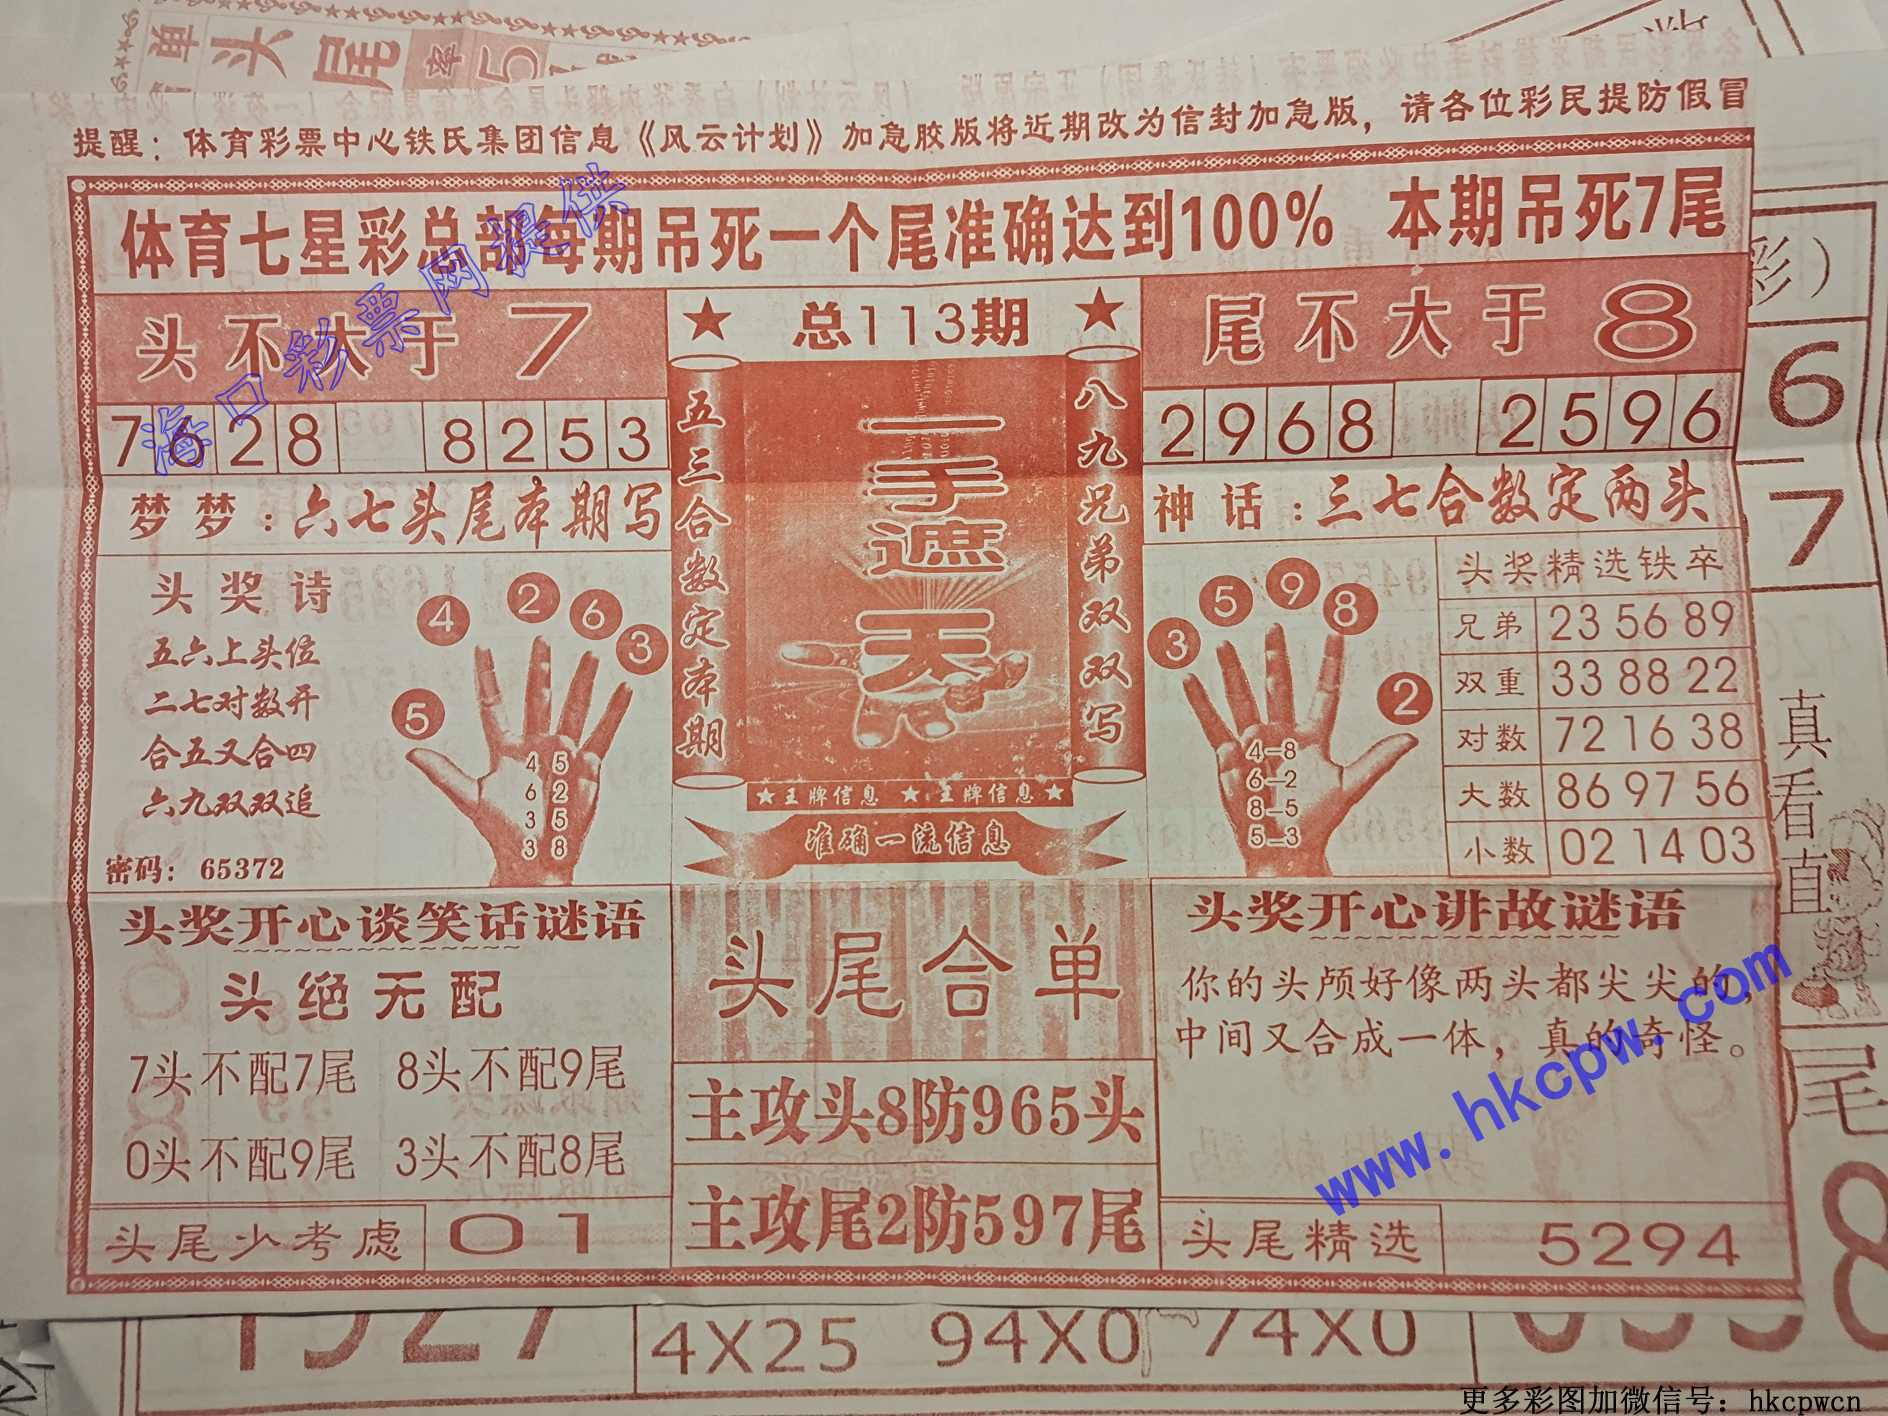 单头尾
率5
提醒：体育彩票中心铁氏集团信息《风云计划》加急胶版将近期改为信封加急版，请各位彩民提防假冒
体育七星彩总部每期吊死一个尾准确达到100% 本期吊死7尾
海口彩票网提供
头不大于7
7628 8253
梦梦：六七头尾本期写
头奖诗
五六上头位
二七对数开
合五又合四
六九双双追
密码：65372
5 4 2 6 3
4 5
6 2
3 5
3 8
★ 总113期 ★
五三合数定本期
一手遮天
八九兄弟双双写
★王牌信息 ★王牌信息★
准确一流信息
尾不大于8
2968 2596
神话：三七合数定两头
3 5 9 8 2
4-8
6-2
8-5
5-3
头奖精选铁卒
兄弟 23 56 89
双重 33 88 22
对数 72 16 38
大数 86 97 56
小数 02 14 03
头奖开心谈笑话谜语
头绝无配
7头不配7尾 8头不配9尾
0头不配9尾 3头不配8尾
头尾少考虑 01
头尾合单
主攻头8防965头
主攻尾2防597尾
头奖开心讲故谜语
你的头颅好像两头都尖尖的，
中间又合成一体，真的奇怪。
头尾精选 5294
www.hkcpw.com
彩）
6
7
真看直
尾
8
1527
4X25 94X0 74X0
更多彩图加微信号：hkcpwcn